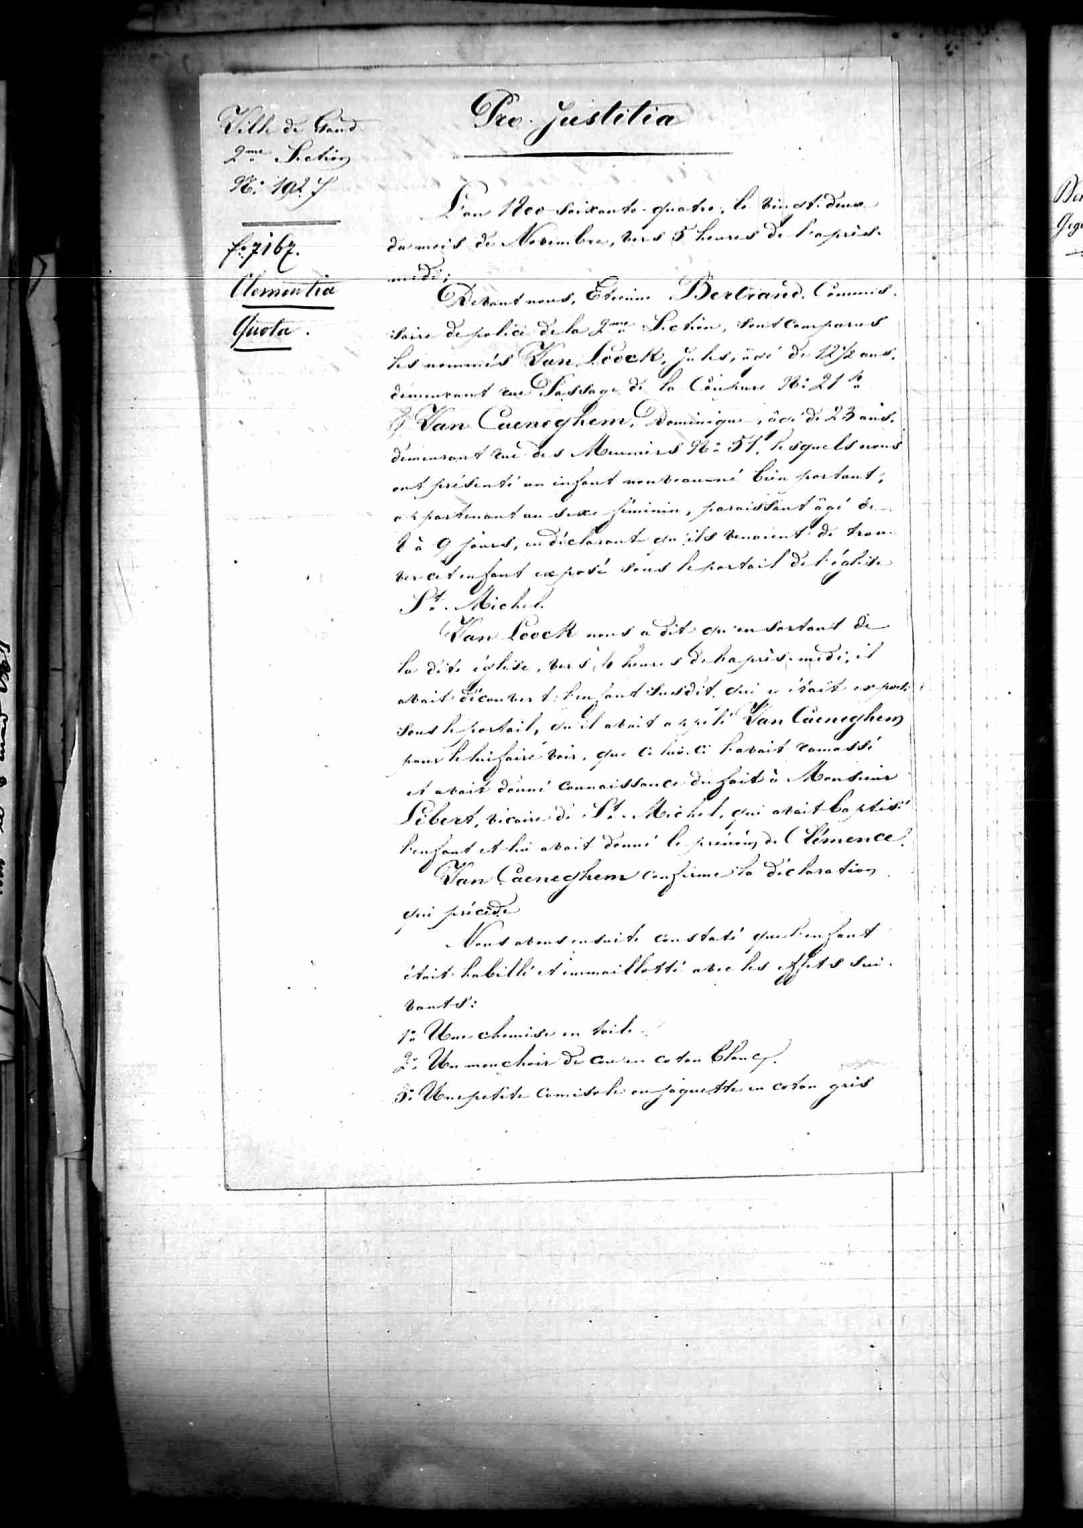 Ville de Gand
2me Section
No: 1927
fo. 7167.
Clementia
Quota.
Pro Justitia
L'an 1800 soixante-quatre, le vingt-deux
du mois de Novembre, vers 5 heures de l'après-
midi;
Devant nous, Etienne Bertrand, Commis-
saire de police de la 2me Section, sont comparus
les nommés Van Loock, Jules, âgé de 12 1/2 ans,
demeurant rue Passage de la No: 21
& Van Caeneghem, Dominique, âgé de 23 ans,
demeurant rue des Meuniers No: 51, lesquels nous
ont présenté un enfant nouveau né bien portant,
appartenant au sexe féminin, paraissant âgé de
8 à 9 jours, en déclarant qu'ils venaient de trou-
ver cet enfant exposé sous le portail de l'église
St. Michel.
Van Loock nous a dit qu'en sortant de
la dite église, vers 4 heures de l'après-midi, il
avait découvert l'enfant susdit qui y était exposé
sous le portail, qu'il avait appelé Van Caeneghem
pour le lui faire voir, que celui-ci l'avait ramassé
et avait donné connaissance du fait à Monsieur
Libert, vicaire de St. Michel, qui avait baptisé
l'enfant et lui avait donné le prénom de Clémence.
Van Caeneghem confirme la déclaration
qui précède
Nous avons ensuite constaté que l'enfant
était habillé et emmaillotté avec les effets sui-
vants:
1o Une chemise en toile
2o Un mouchoir de cou en coton blanc.
3o Une petite camisole ou jaquette en coton gris